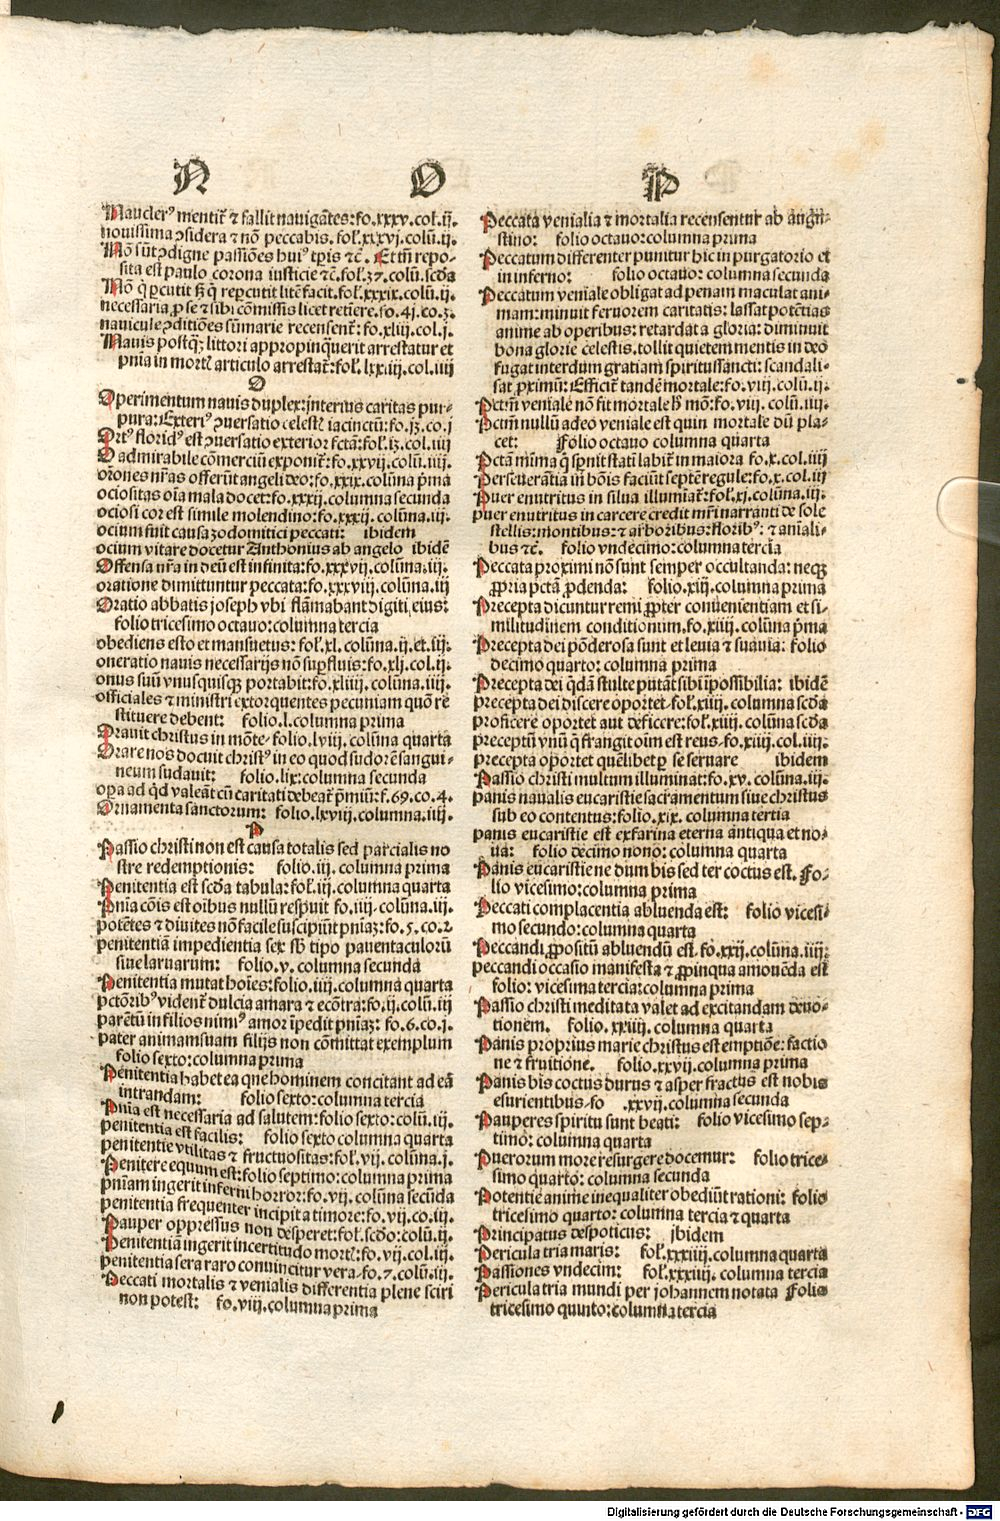 N O P
Naucler⁹ mentit᷑ ⁊ fallit nauigãtes: fo.xxxv.col.ij.
nouissima ꝯsidera ⁊ nõ peccabis. fol᷑.xxxvj.colũ.ij.
Nõ sũt ꝯdigne passiões hui⁹ tp̃is ⁊c̃. Et m̃ repo-
sita est paulo corona iusticie ⁊c̃.fol᷑.37.colũ.scḋa
Nõ q̇ ꝑcutit sȝ q̇ reꝑcutit litẽ facit.fol᷑.xxxix.colũ.ij.
necessaria ꝓ se ⁊ sibi cõmissis licet retiere.fo.4j.co.3.
nauicule ꝯditiões sũmarie recensent᷑: fo.xliij.col.j.
Nauis postq̃ȝ littori appropinq̃uerit arrestatur et
pnĩa in mortẽ articulo arrestat᷑: fol᷑. lxiiij.col.iiij
O
Operimentum nauis duplex: interius caritas pur-
pura: Exteri⁹ ꝯuersatio celest᷑ iacinctũ: fo.j3.co.j
Ort⁹ florid⁹ est ꝯuersatio exterior sctã: fol᷑.i3.col.iiij
O admirabile cõmerciũ exponit᷑: fo.xxvij.colũ.iiij.
orõnes nr̃as offerũt angeli deo: fo.xxix.colũna p̃ma
ociositas oĩa mala docet: fo.xxxij.columna secunda
ociosi cor est simile molendino: fo.xxxij.colũna.iij.
ocium fuit causa zodomitici peccati: ibidem
ocium vitare docetur Anthonius ab angelo ibidẽ
Offensa nr̃a in deũ est infinita: fo.xxxvij.colũna.iij.
oratione dimittuntur peccata: fo.xxxviij.colũna.iij
Oratio abbatis joseph vbi flãmabant digiti eius:
folio tricesimo octauo: columna tercia
obediens esto et mansuetus: fol᷑.xl.colũna.ij.et.iij.
oneratio nauis necessarijs nõ suꝑfluis: fo.xlj.col.ij.
onus suũ vnusquisqȝ portabit: fo.xliiij.colũna.iiij.
officiales ⁊ ministri extorquentes pecuniam quõ re
stituere debent: folio.l.columna prima
Orauit christus in mõte-folio.lviij.colũna quarta
Orare nos docuit christ⁹ in eo quod sudorẽ sangui-
neum sudauit: folio.lix: columna secunda
oꝑa ad qd̃ valeãt cũ caritati debeat᷑ p̃miũ: f.69.co.4.
Ornamenta sanctorum: folio.lxviij.columna.iiij.
P
Passio christi non est causa totalis sed parcialis no
stre redemptionis: folio.iij.columna prima
Penitentia est scḋa tabula: fol᷑.iij.columna quarta
Pnĩa cõis est oĩbus nullũ respuit fo.iij.colũna.iij.
potẽtes ⁊ diuites nõ facile suscipiũt pniaȝ: fo.5.co.2
penitentiã impedientia sex sꝫ tipo pauentaculorũ
siue laruarum: folio.v.columna secunda
Penitentia mutat hoĩes: folio.iiij.columna quarta
pctõrib⁹ vident᷑ dulcia amara ⁊ ecõtra: fo.ij.colũ.iij
parẽtũ in filios nimi⁹ amor ĩpedit pniaȝ: fo.6.co.j.
pater animam suam filijs non cõmittat exemplum
folio sexto: columna prima
Penitentia habet ea que hominem concitant ad eã
intrandam: folio sexto: columna tercia
Pnĩa est necessaria ad salutem: folio sexto: colũ.iij.
penitentia est facilis: folio sexto columna quarta
penitentie vtilitas ⁊ fructuositas: fol᷑.vij.colũna.j.
Penitere equum est: folio septimo: columna prima
pniam ingerit inferni horror: fo.vij.colũna secũda
penitentia frequenter incipit a timore: fo.vij.co.iij.
Pauper oppressus non desperet: fol᷑.scḋo: colũ.ij.
Penitentiã ingerit incertitudo mort᷑: fo.vij.col.iij.
penitentia sera raro conuincitur vera-fo.7.colũ.iij.
Peccati mortalis ⁊ venialis differentia plene sciri
non potest: fo.viij.columna prima
Peccata venialia ⁊ mortalia recensentur ab augu-
stino: folio octauo: columna prima
Peccatum differenter punitur hic in purgatorio et
in inferno: folio octauo: columna secunda
Peccatum veniale obligat ad penam maculat ani-
mam: minuit feruorem caritatis: lassat potẽtias
anime ab operibus: retardat a gloria: diminuit
bona glorie celestis. tollit quietem mentis in deo
fugat interdum gratiam spiritussancti: scandali-
sat ꝓximũ: Efficit᷑ tandẽ mortale: fo.viij.colũ.ij.
Pctm̃ veniale nõ fit mortale h̾ mõ: fo.viij.colũ.iiij.
Pctm̃ nullũ adeo veniale est quin mortale dũ pla-
cet: folio octauo columna quarta
Pctã mĩma q̃ sp̃nit statĩ labit᷑ in maiora fo.x.col.iiij
Perseuerãtia in bõis faciũt septẽ regule: fo.x.col.iij
Puer enutritus in silua illumiat᷑: fol᷑.xj.colũna.iij.
puer enutritus in carcere credit mr̃i narranti de sole
stellis: montibus: ⁊ arboribus: florib⁹: ⁊ aniali-
bus ⁊c̃. folio vndecimo: columna tercia
Peccata proximi nõ sunt semper occultanda: neqȝ
ꝓpria pctã ꝓdenda: folio.xiij.columna prima
Precepta dicuntur remi ꝓpter conuenientiam et si-
militudinem conditionum.fo.xiiij.colũna p̃ma
Precepta dei põderosa sunt et leuia ⁊ suauia: folio
decimo quarto: columna prima
Precepta dei q̃dã stulte putãt sibi ĩpossibilia: ibidẽ
precepta dei discere oportet-fol᷑.xiiij.columna scḋa
proficere oportet aut deficere: fol᷑.xiiij.colũna scḋa
preceptũ vnũ q̇ frangit oĩm est reus-fo.xiiij.col.iiij:
precepta oportet quẽlibet ꝑ se seruare ibidem
Passio christi multum illuminat: fo.xv.colũna.iij.
panis naualis eucaristie sacramentum siue christus
sub eo contentus: folio.xix.columna tertia
panis eucaristie est ex farina eterna antiqua et no-
ua: folio decimo nono: columna quarta
Panis eucaristie ne dum bis sed ter coctus est. Fo-
lio vicesimo: columna prima
Peccati complacentia abluenda est: folio vicesi-
mo secundo: columna quarta
Peccandi ꝓpositũ abluendũ est.fo.xxij.colũna.iiij:
peccandi occasio manifesta ⁊ ꝓpinqua amouẽda est
folio: vicesima tercia: columna prima
Passio christi meditata valet ad excitandam deuo-
tionem. folio.xxiij.columna quarta
Panis proprius marie christus est emptiõe: factio
ne ⁊ fruitione. folio.xxvij.columna prima
Panis bis coctus durus ⁊ asper fractus est nobis
esurientibus-fo .xxvij.columna secunda
Pauperes spiritu sunt beati: folio vicesimo sep-
timo: columna quarta
Puerorum more resurgere docemur: folio trice-
simo quarto: columna secunda
Potentie anime inequaliter obediũt rationi: folio
tricesimo quarto: columna tercia ⁊ quarta
Principatus despoticus: jbidem
Pericula tria maris: fol᷑.xxxiiij.columna quarta
Passiones vndecim: fol᷑.xxxiiij.columna tercia
Pericula tria mundi per johannem notata Folio
tricesimo quinto: columna tercia
Digitalisierung gefördert durch die Deutsche Forschungsgemeinschaft - DFG